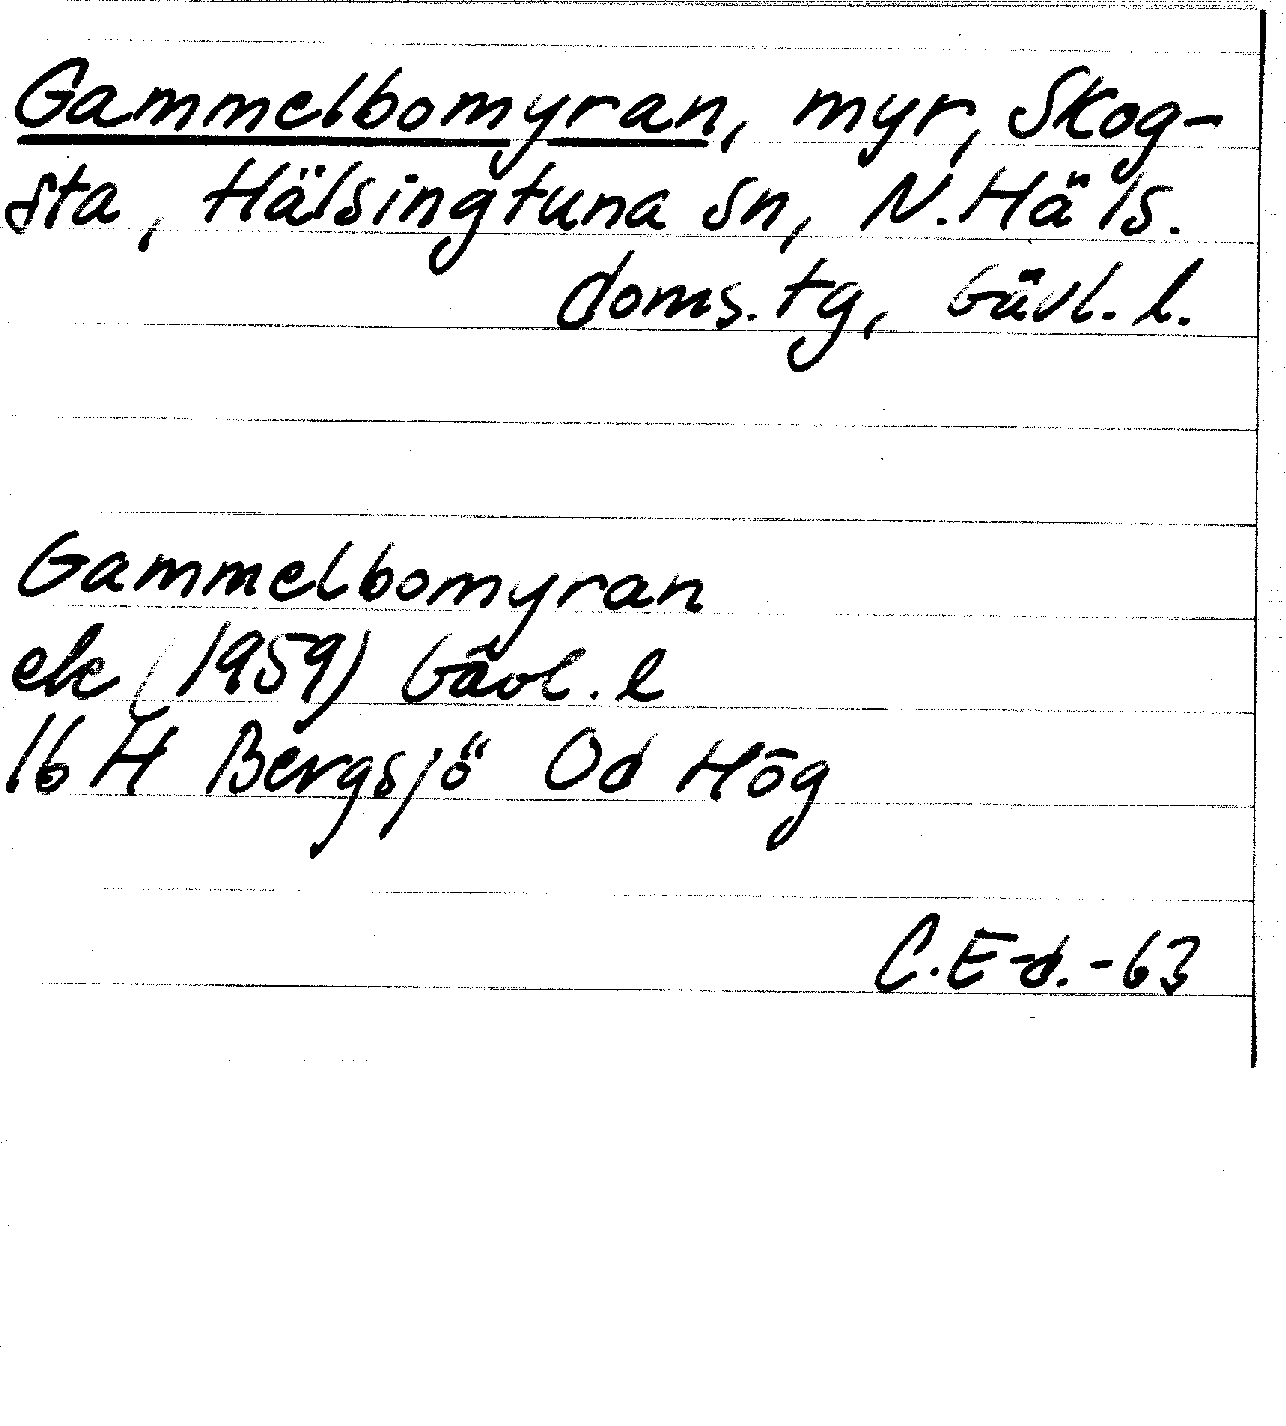 Gammelbomyran, myr, Skog-
sta, Hälsingtuna sn, N. Häls.
doms. tg, Gävl. l.
Gammelbomyran
ek (1959) Gävl. l
16 H Bergsjö Od Hög
C. E-d. -63